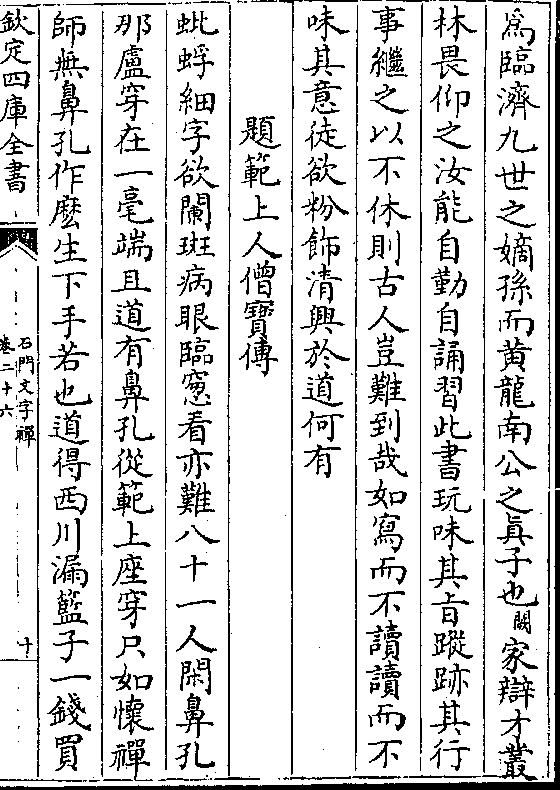 爲臨濟九世之嫡孫而黄龍南公之真子也闕家辯才叢
林畏仰之汝能自勤自誦習此書玩味其旨蹤跡其行
事繼之以不休則古人豈難到哉如寫而不讀讀而不
味其意徒欲粉飾清興於道何有
題範上人僧寶傳
蚍蜉細字欲闌斑病眼臨窻看亦難八十一人閑鼻孔
那盧穿在一毫端且道有鼻孔從範上座穿只如懷禪
師無鼻孔作麽生下手若也道得西川漏籃子一錢買
欽定四庫全書
石門文字禪
卷二十六
十